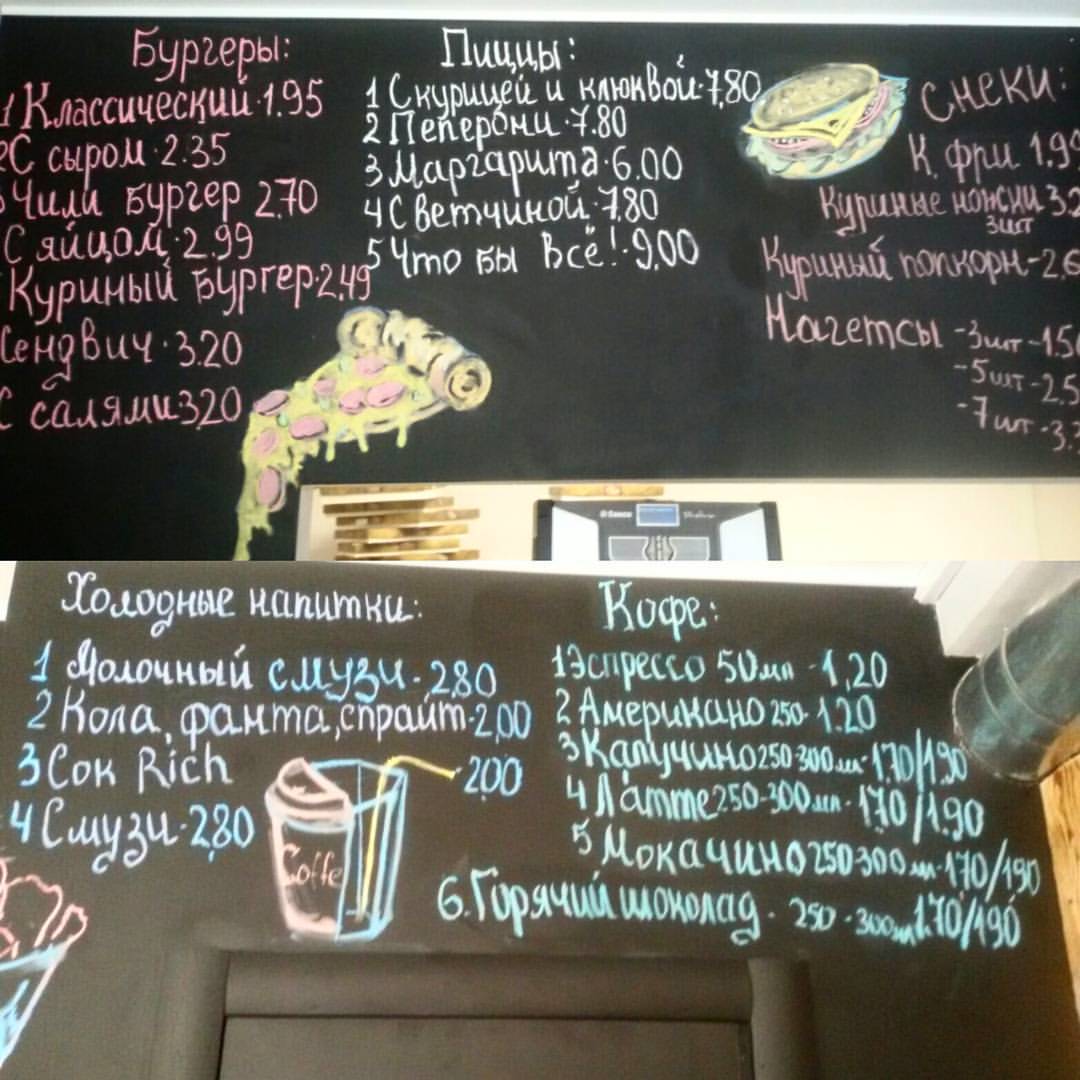 Бургеры:
1 Классический · 1.95
2 С сыром · 2.35
3 Чили бургер 2.70
С яйцом · 2.99
Куриный бургер · 2.49
Сендвич · 3.20
С салями 3,20
Пиццы:
1 С курицей и клюквой · 7,80
2 Пеперони · 7.80
3 Маргарита · 6.00
4 С ветчиной · 7,80
5 Что бы всё! · 9,00
Снеки:
К. фри 1.99
Куриные ножки 3.2
3шт
Куриный попкорн - 2,6
Нагетсы - 3шт - 1.5
- 5шт - 2.5
- 7шт - 3.
Saeco
Холодные напитки:
1 Молочный смузи · 2,80
2 Кола, фанта, спрайт · 2,00
3 Сок Rich · 2,00
4 Смузи · 2,80
Coffe
Кофе:
1 Эспрессо 50мл - 1,20
2 Американо 250 · 1.20
3 Капучино 250-300мл · 1,70/1,90
4 Латте 250-300мл · 1.70/1.90
5 Мокачино 250 300мл · 170/190
6. Горячий шоколад · 250 - 300мл 1.70/190